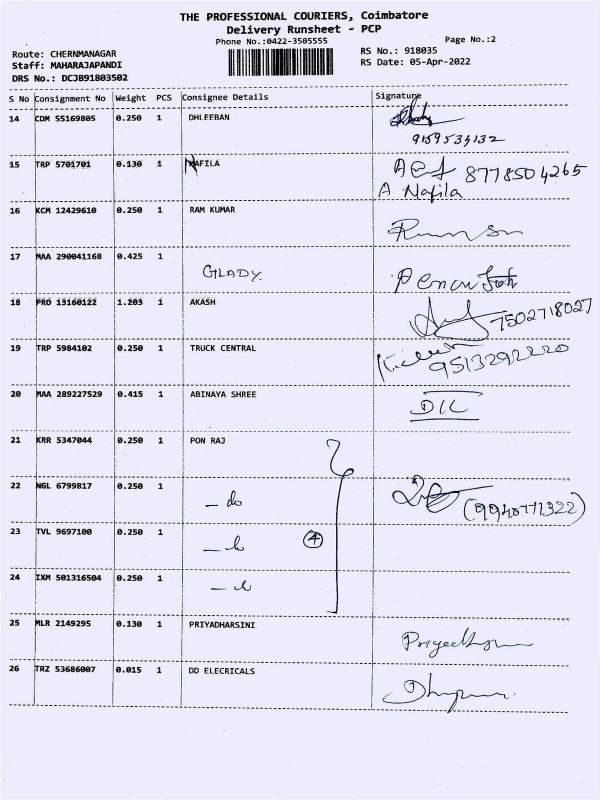 THE PROFESSIONAL COURIERS, Coimbatore
Delivery Runsheet - PCP
Phone No.:0422-3505555
Page No.:2
Route: CHERNMANAGAR
RS No.: 918035
Staff: MAHARAJAPANDI
RS Date: 05-Apr-2022
DRS No.: DCJB91803502
S No Consignment No Weight PCS Consignee Details Signature
14 CDM 55169805 0.250 1 DHLEEBAN
9159534132
15 TRP 5701701 0.130 1 NAFILA 8778504265
A Nafila
16 KCM 12429610 0.250 1 RAM KUMAR
17 MAA 290041168 0.425 1
GLADY.
18 PRO 13160122 1.203 1 AKASH
7502718027
19 TRP 5984102 0.250 1 TRUCK CENTRAL
9513292220
20 MAA 289227529 0.415 1 ABINAYA SHREE
DIL
21 KRR 5347044 0.250 1 PON RAJ
22 NGL 6799817 0.250 1
- do (9940771322)
23 TVL 9697100 0.250 1
4
24 IXM 501316504 0.250 1
25 MLR 2149295 0.130 1 PRIYADHARSINI
26 TRZ 53686007 0.015 1 DD ELECRICALS